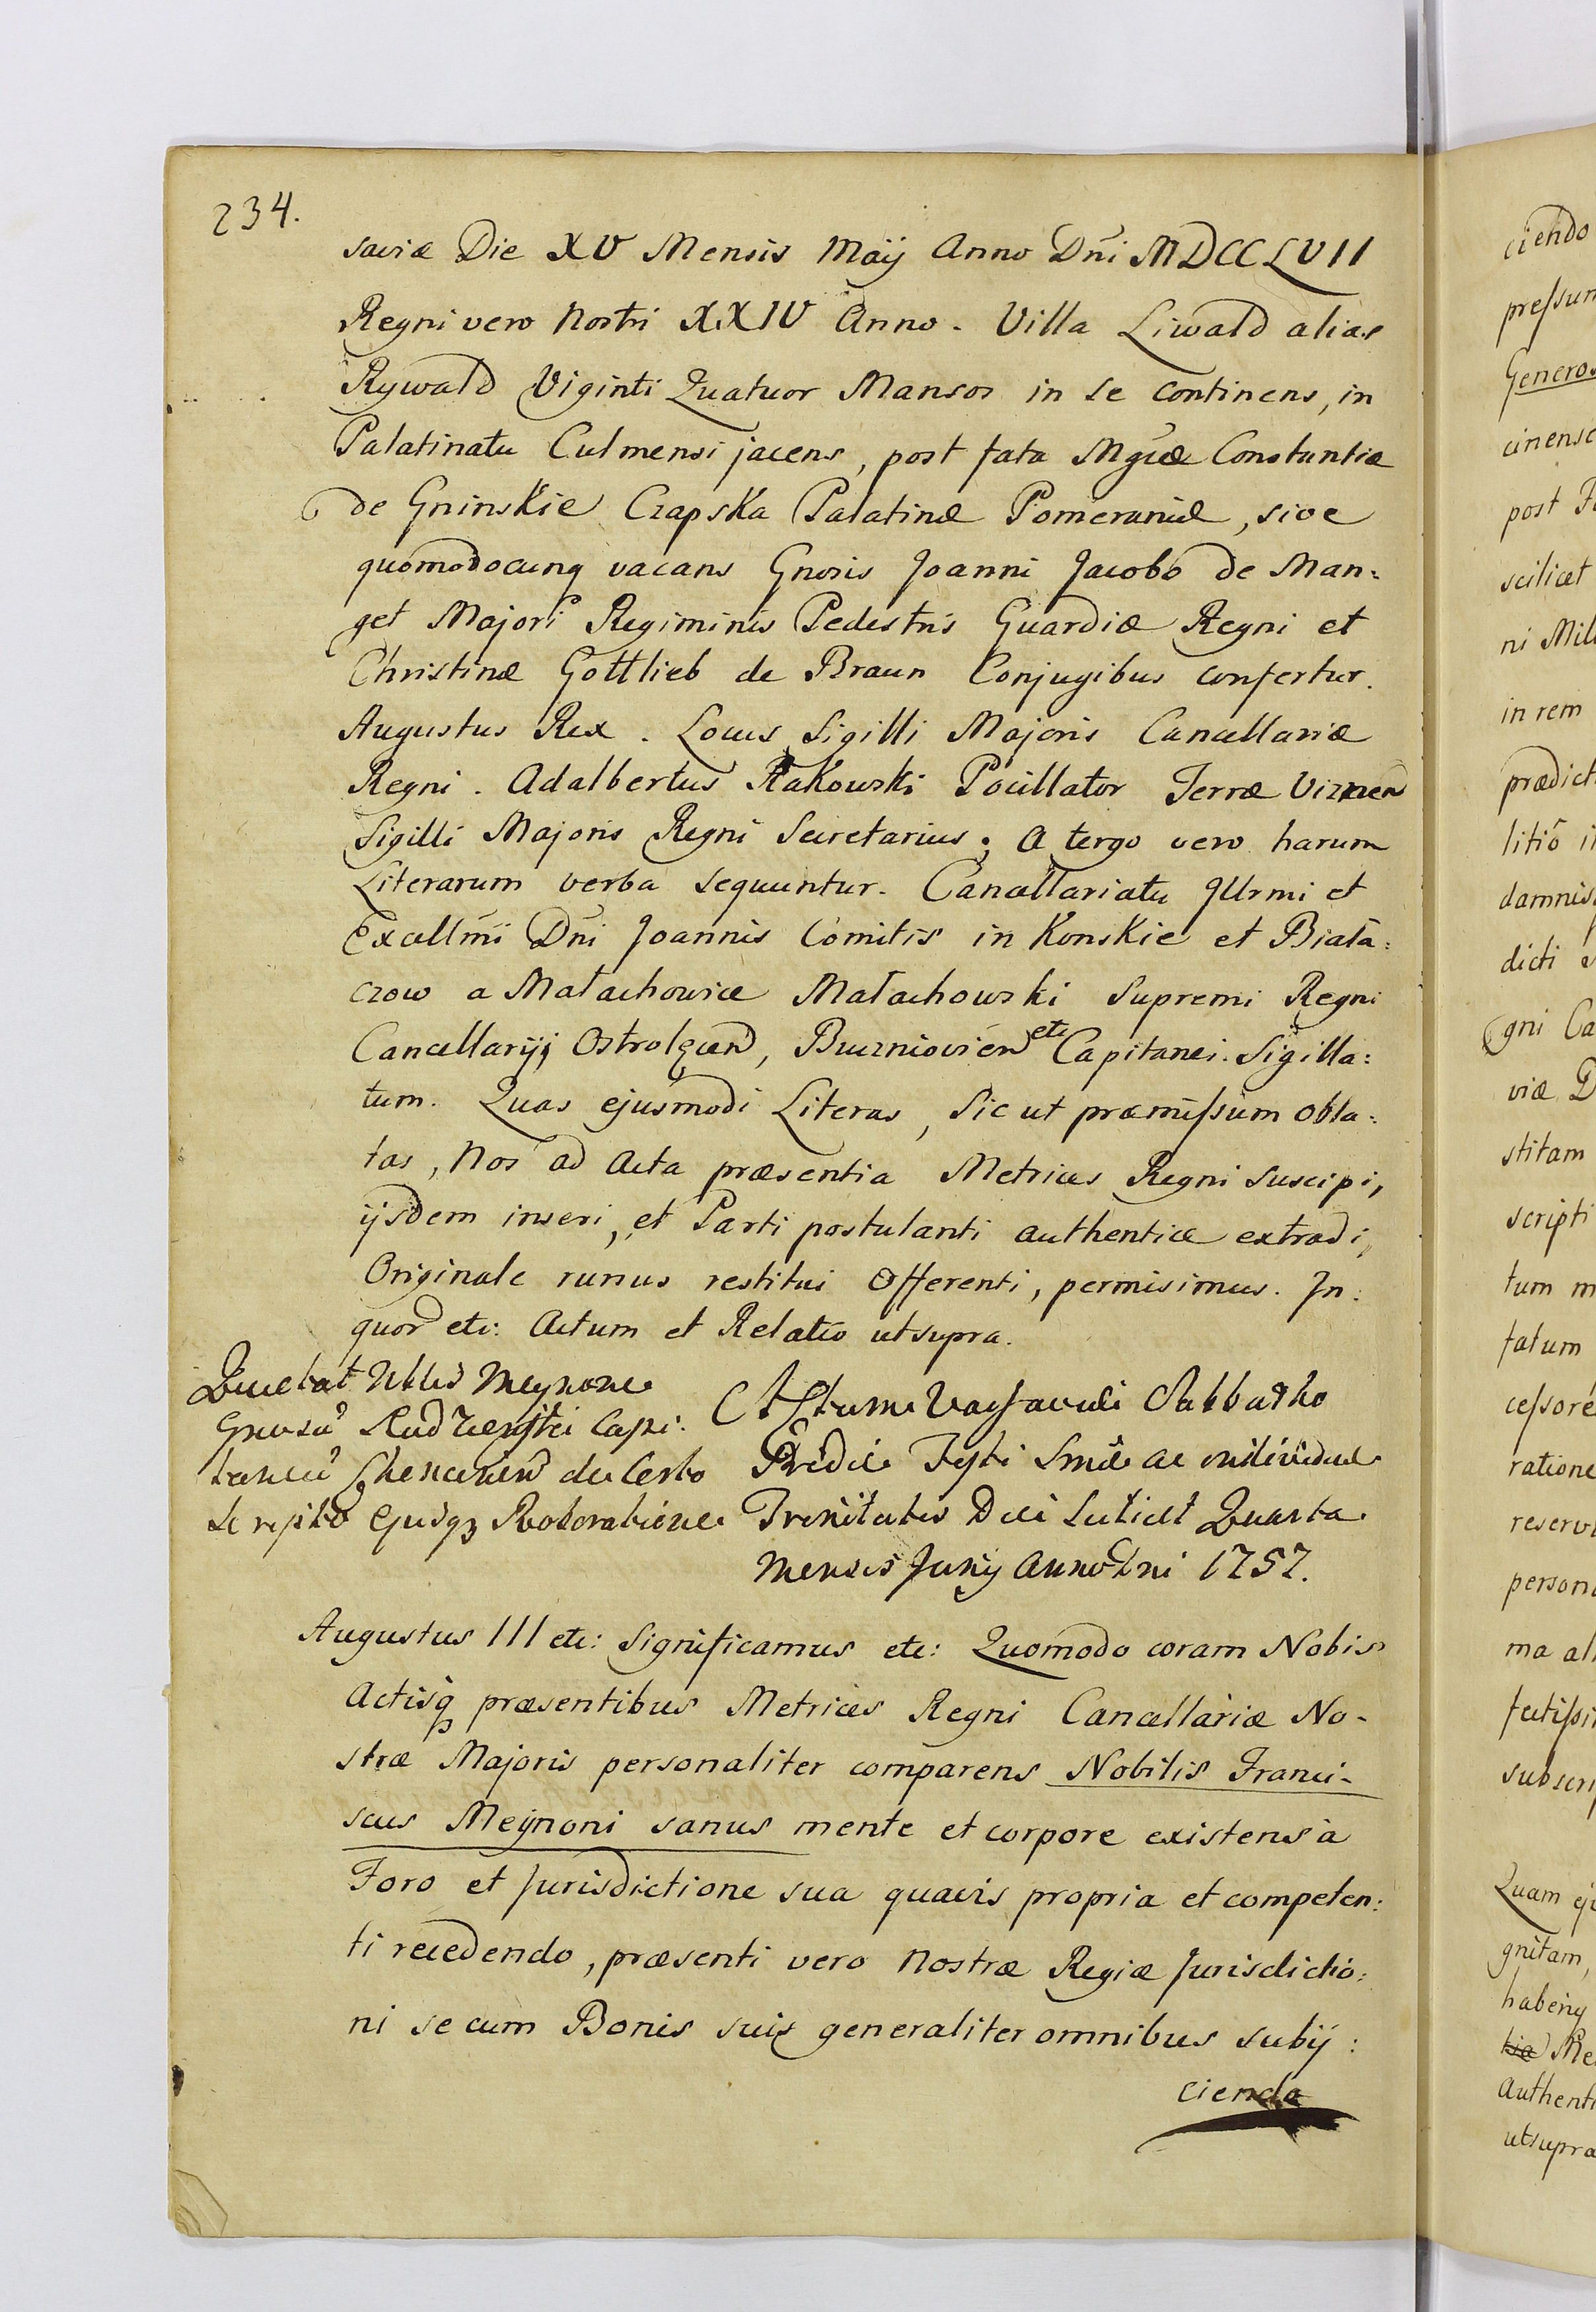 234.
saviæ Die XV Mensis Maÿ Anno Dñi MDCCLVII
Regni vero Nostri XXIV Anno. Villa Liwald alias
Rywald Viginti Quatuor Mansos in se continens, in
Palatinatu Culmensi jacens, post fata Mgcæ Constantiæ
de Gninskie Czapska Palatinæ Pomeraniæ, sive
quomodocunq vacans Gnosis Joanni Jacobo de Man:
get Majori Regiminis Pedestris Guardiæ Regni et
Christinæ Gottlieb de Braun Conjugibus confertur.
Augustus Rex. Locus Sigilli Majoris Cancellariæ
Regni. Adalbertus Rakowski Pocillator Terræ Viznen
Sigilli Majoris Regni Secretarius; A tergo vero harum
Literarum verba sequuntur. Cancellariatu Jllrmi et
Excellmi Dñi Joannis Comitis in Konskie et Biała:
czow a Małachowice Małachowski Supremi Regni
Cancellarij, Ostrolęcen, Buczniovien etc Capitanei. Sigilla:
tum. Quas ejusmodi Literas, Sic ut præmissum obla:
tas, Nos ad Acta præsentia Metrices Regni Suscipi,
ijsdem inseri, et Parti postulanti authentice extradi,
Originale rursus restitui Offerenti, permisimus. Jn:
quor etc: Actum et Relatio utsupra.
Quietat Nblis Meynone
Gnosu Rudzienski Capi:
taneu de Certo
scripto Ejusqz Roboratione
Actum Varsaviæ Sabbatho
Pridie Festi Smæ ac individuæ
Trinitatis Die Scilicet Quarta
Mensis Junÿ Anno Dni 1757.
Augustus III etc: Significamus etc: Quomodo coram Nobis
Actisq præsentibus Metrices Regni Cancellariæ No-
stræ Majoris personaliter comparens Nobilis Franci-
scus Meÿnoni sanus mente et corpore existens à
Foro et Jurisdictione sua quavis propria et competen:
ti recedendo, præsenti vero Nostræ Regiæ Jurisdictio:
ni se cum Bonis suis generaliter omnibus subij:
ciendo
ciendo
pressum
Generos
cinense
post F
scilicet
ni Mil
in rem
prædict
litio i
damnis
dicti
gni Ca
viæ D
stitam
scripti
tum m
fatum
cessore
ratione
reserv
person
ma al
fectissi
subscri
Quam ej
gnitam,
habeng
Me
Authenti
utsupra